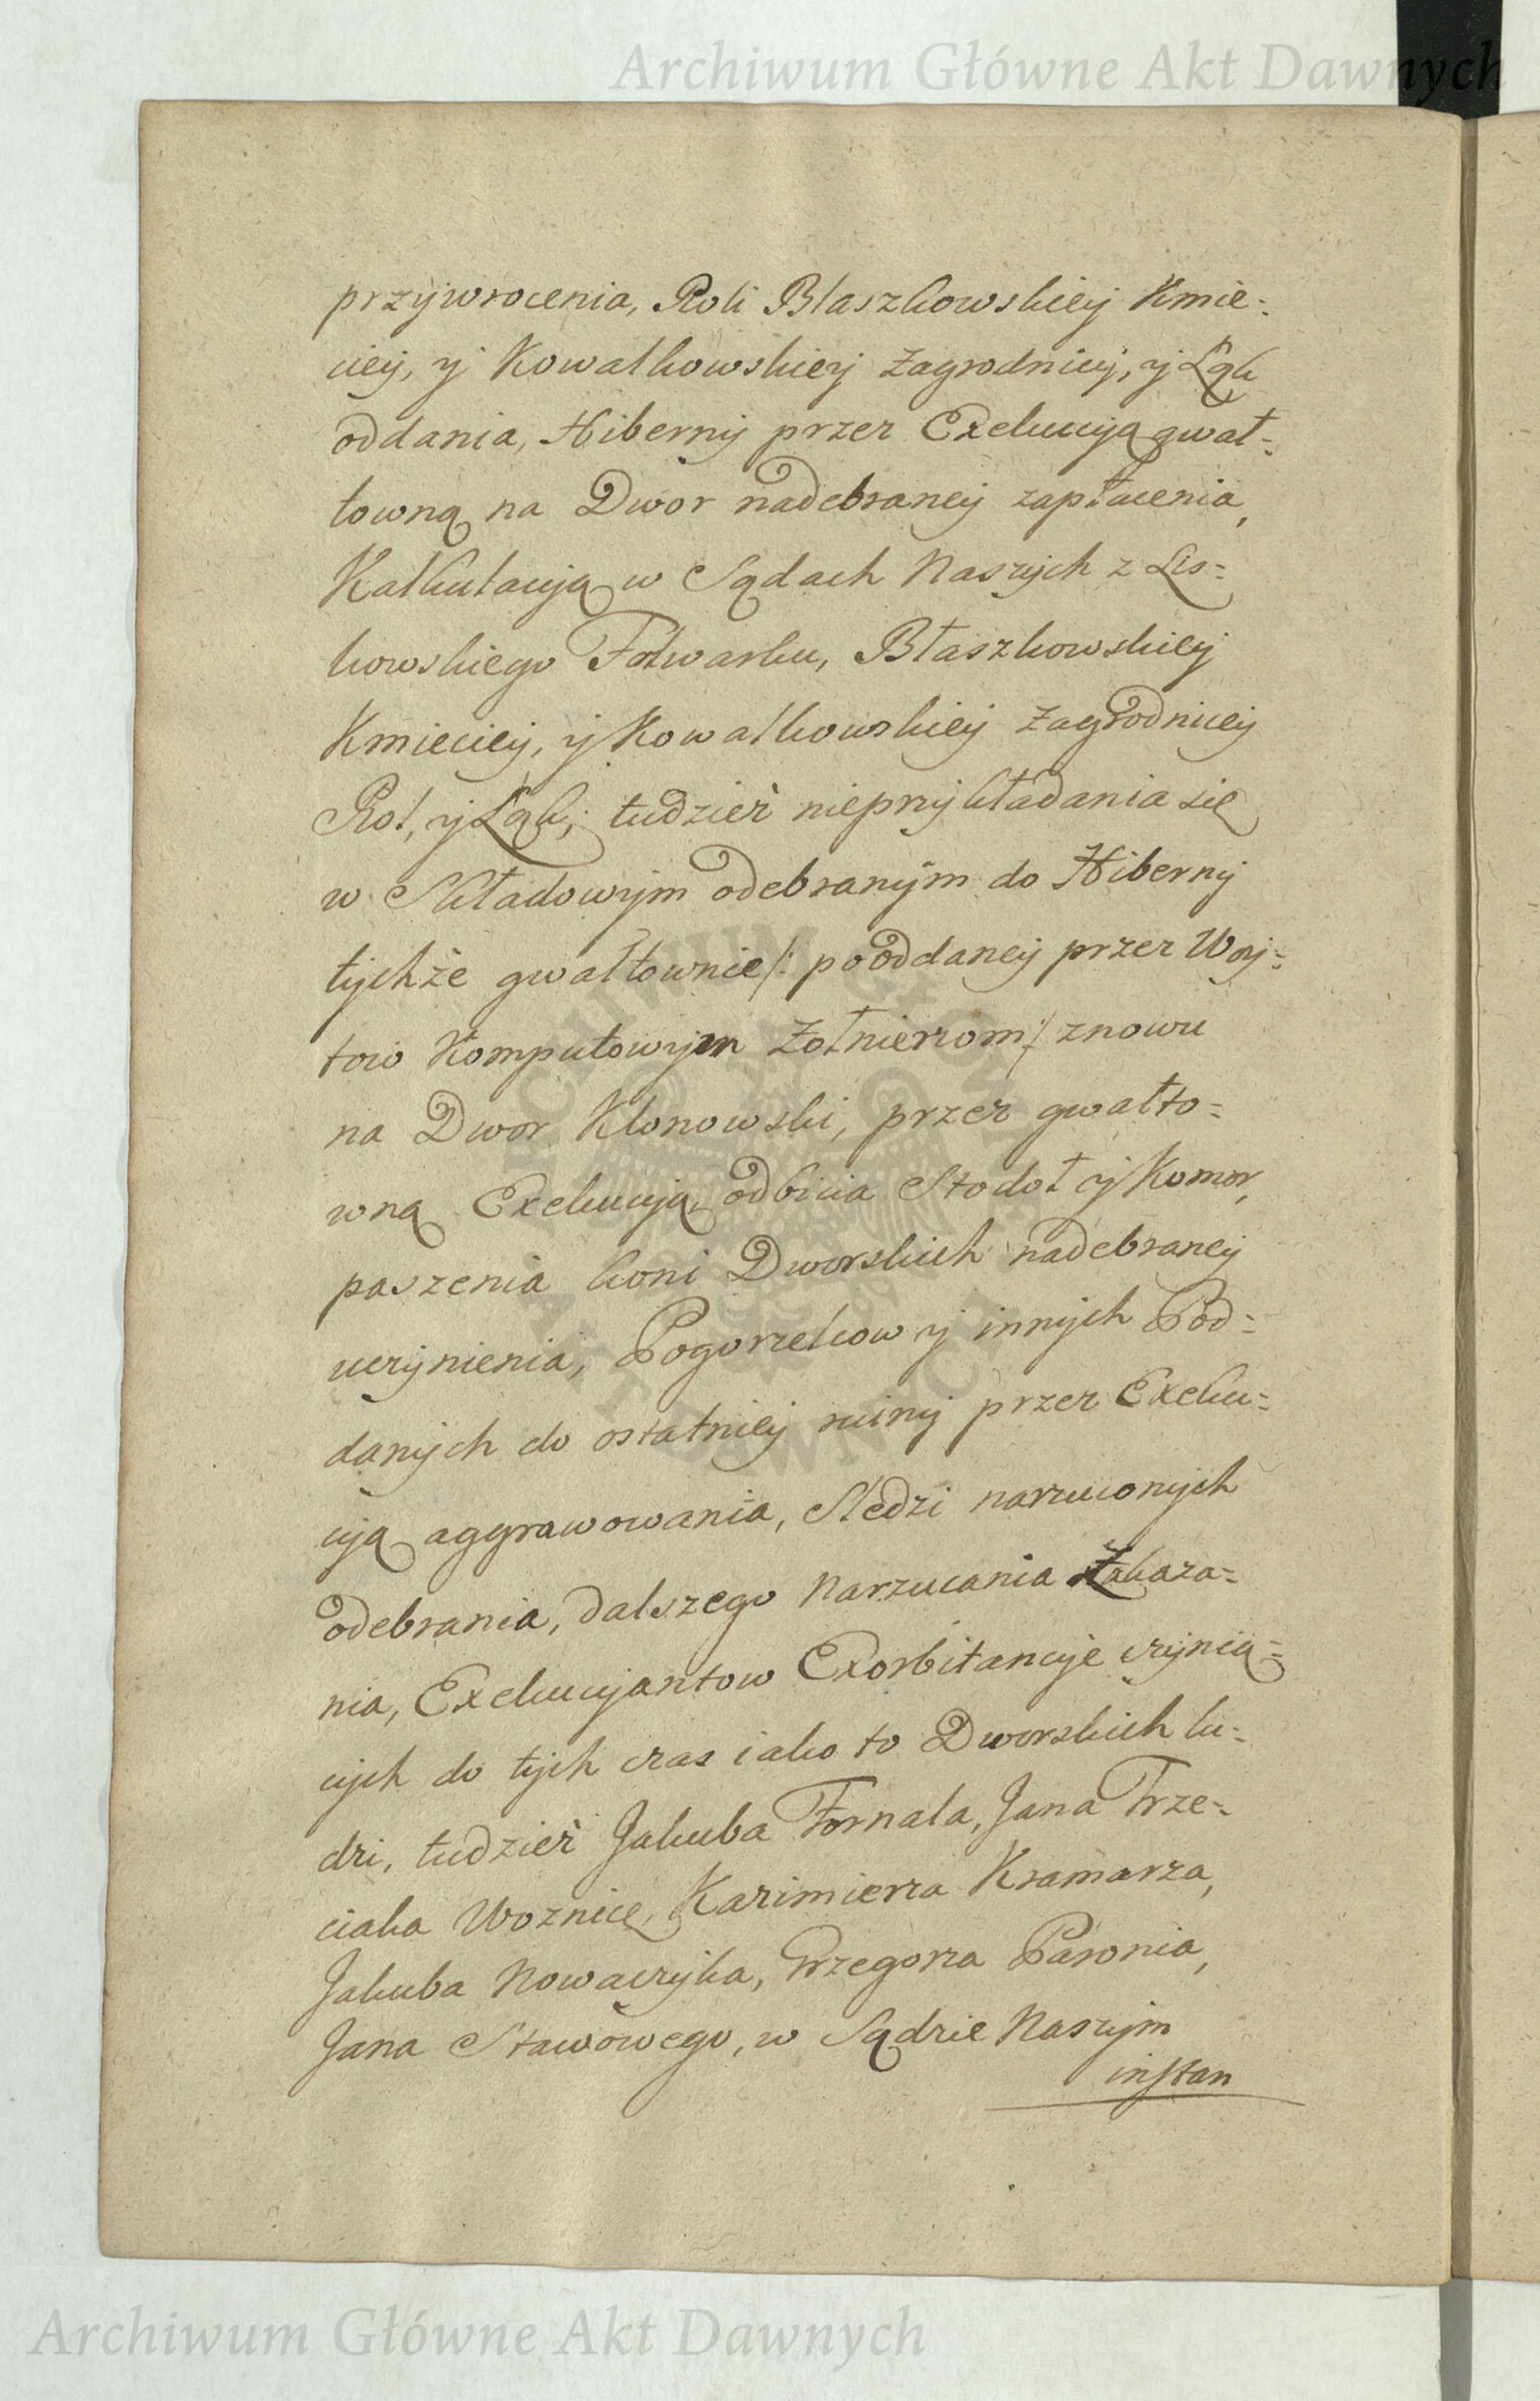 Archiwum Główne Akt Dawnych
przywrocenia, Roli Błaszkowskiey Kmie=
ciey, y Kowalkowskiey Zagrodnicy, y Łąk
oddania, Hiberny przez Exekucyą gwał=
towną na Dwor nadebraney zapłacenia,
Kalkulacyą w Sądach Naszych z Lis=
kowskiego Folwarku, Błaszkowskiey
Kmieciey, y Kowalkowskiey Zagrodniczey
Rol, y Łąk; tudzież nieprzykładania się
w Składowym odebranym do Hiberny
tychże gwałtownie /: po oddaney przez Woy=
tow Komputowym Żołnierzom :/ znowu
na Dwor Klonowski, przez gwałto=
wną Exekucyą, odbicia Stodoł y Komor,
paszenia koni Dworskich nadebraney
uczynienia, Pogorzelcow y innych Pod=
danych do ostatniey ruiny przez Exeku=
cyą aggrawowania, Sledzi narzuconych
odebrania, dalszego Narzucania Zakaza=
nia, Exekucyantow Exorbitancye czynią=
cych do tych czas iako to Dworskich lu=
dzi, tudzież Jakuba Fornala, Jana Trze=
ciaka Woznicę, Kazimierza Kramarza,
Jakuba Nowaczyka, Grzegorza Paronia,
Jana Stawowego, w Sądzie Naszym
instan
Archiwum Główne Akt Dawnych